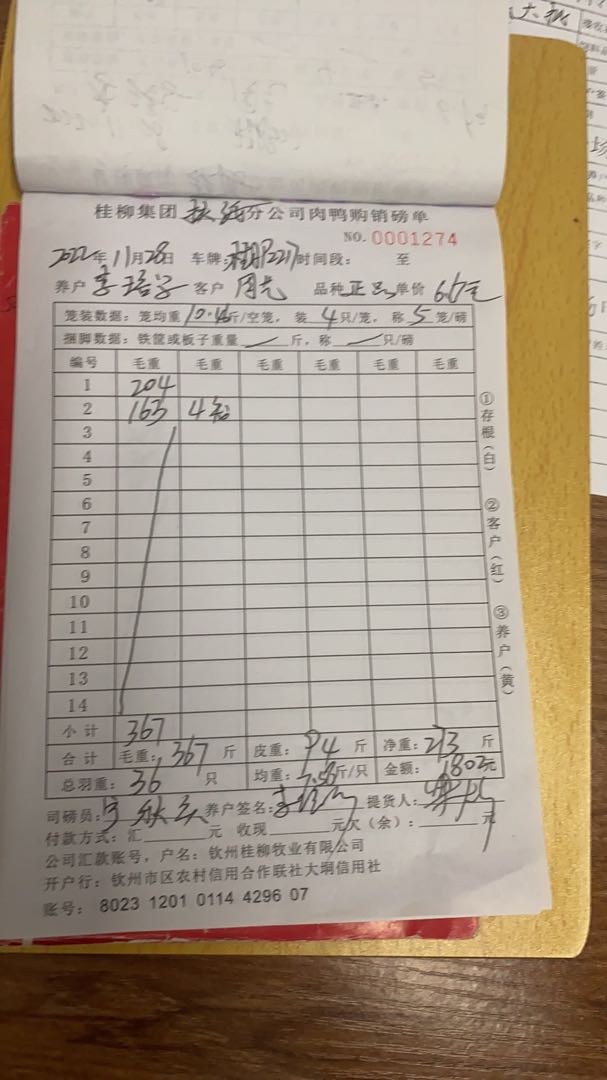 大
桂柳集团 分公司肉鸭购销磅单
NO. 0001274
2022年11月28日 车牌: 2217 时间段: 至
养户 李 客户 周 品种 正 单价 6.6元
笼装数据: 笼均重 10.4斤/空笼, 装 4只/笼, 称 5笼/磅
捆脚数据: 铁筐或板子重量 斤, 称 只/磅
编号 毛重 毛重 毛重 毛重 毛重 毛重
1 204
2 163 4
3
4
5
6
7
8
9
10
11
12
13
14
小计 367
合计 毛重: 367 斤 皮重: 94 斤 净重: 273 斤
总羽重: 36 只 均重: 7.58斤/只 金额: 1802元
司磅员: 养户签名: 李 提货人:
付款方式: 汇 元 收现 元欠(余): 元
公司汇款账号, 户名: 钦州桂柳牧业有限公司
开户行: 钦州市区农村信用合作联社大垌信用社
账号: 8023 1201 0114 4296 07
①存根(白)
②客户(红)
③养户(黄)